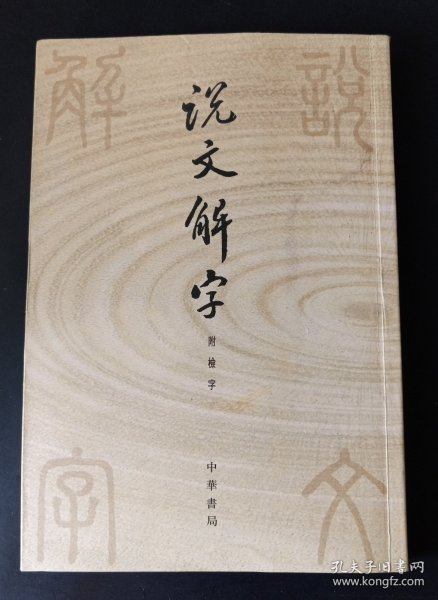 说文解字
附檢字
中華書局
說文解字
孔夫子旧书网
www.kongfz.com